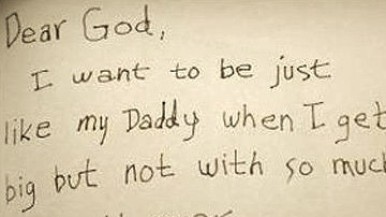 Dear God,
I want to be just
like my Daddy when I get
big but not with so much